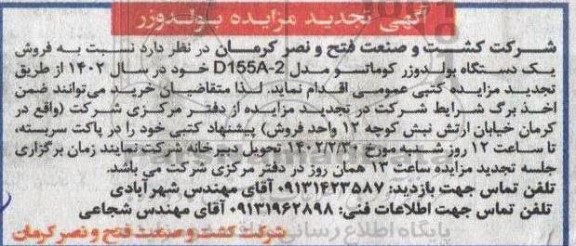 آگهی تجدید مزایده بولدوزر
شرکت کشت و صنعت فتح و نصر کرمان در نظر دارد نسبت به فروش
یک دستگاه بولدوزر کوماتسو مدل D155A-2 خود در سال ۱۴۰۲ از طریق
تجدید مزایده کتبی عمومی اقدام نماید. لذا متقاضیان خرید می‌توانند ضمن
اخذ برگ شرایط شرکت در تجدید مزایده از دفتر مرکزی شرکت (واقع در
کرمان خیابان ارتش نبش کوچه ۱۲ واحد فروش) پیشنهاد کتبی خود را در پاکت سربسته،
تا ساعت ۱۲ روز شنبه مورخ ۱۴۰۲/۲/۳۰ تحویل دبیرخانه شرکت نمایند زمان برگزاری
جلسه تجدید مزایده ساعت ۱۳ همان روز در دفتر مرکزی شرکت می باشد.
تلفن تماس جهت بازدید: ۰۹۱۳۱۴۲۳۵۸۷ آقای مهندس شهرآبادی
تلفن تماس جهت اطلاعات فنی: ۰۹۱۳۱۹۶۲۸۹۸ آقای مهندس شجاعی
شرکت کشت و صنعت فتح و نصر کرمان